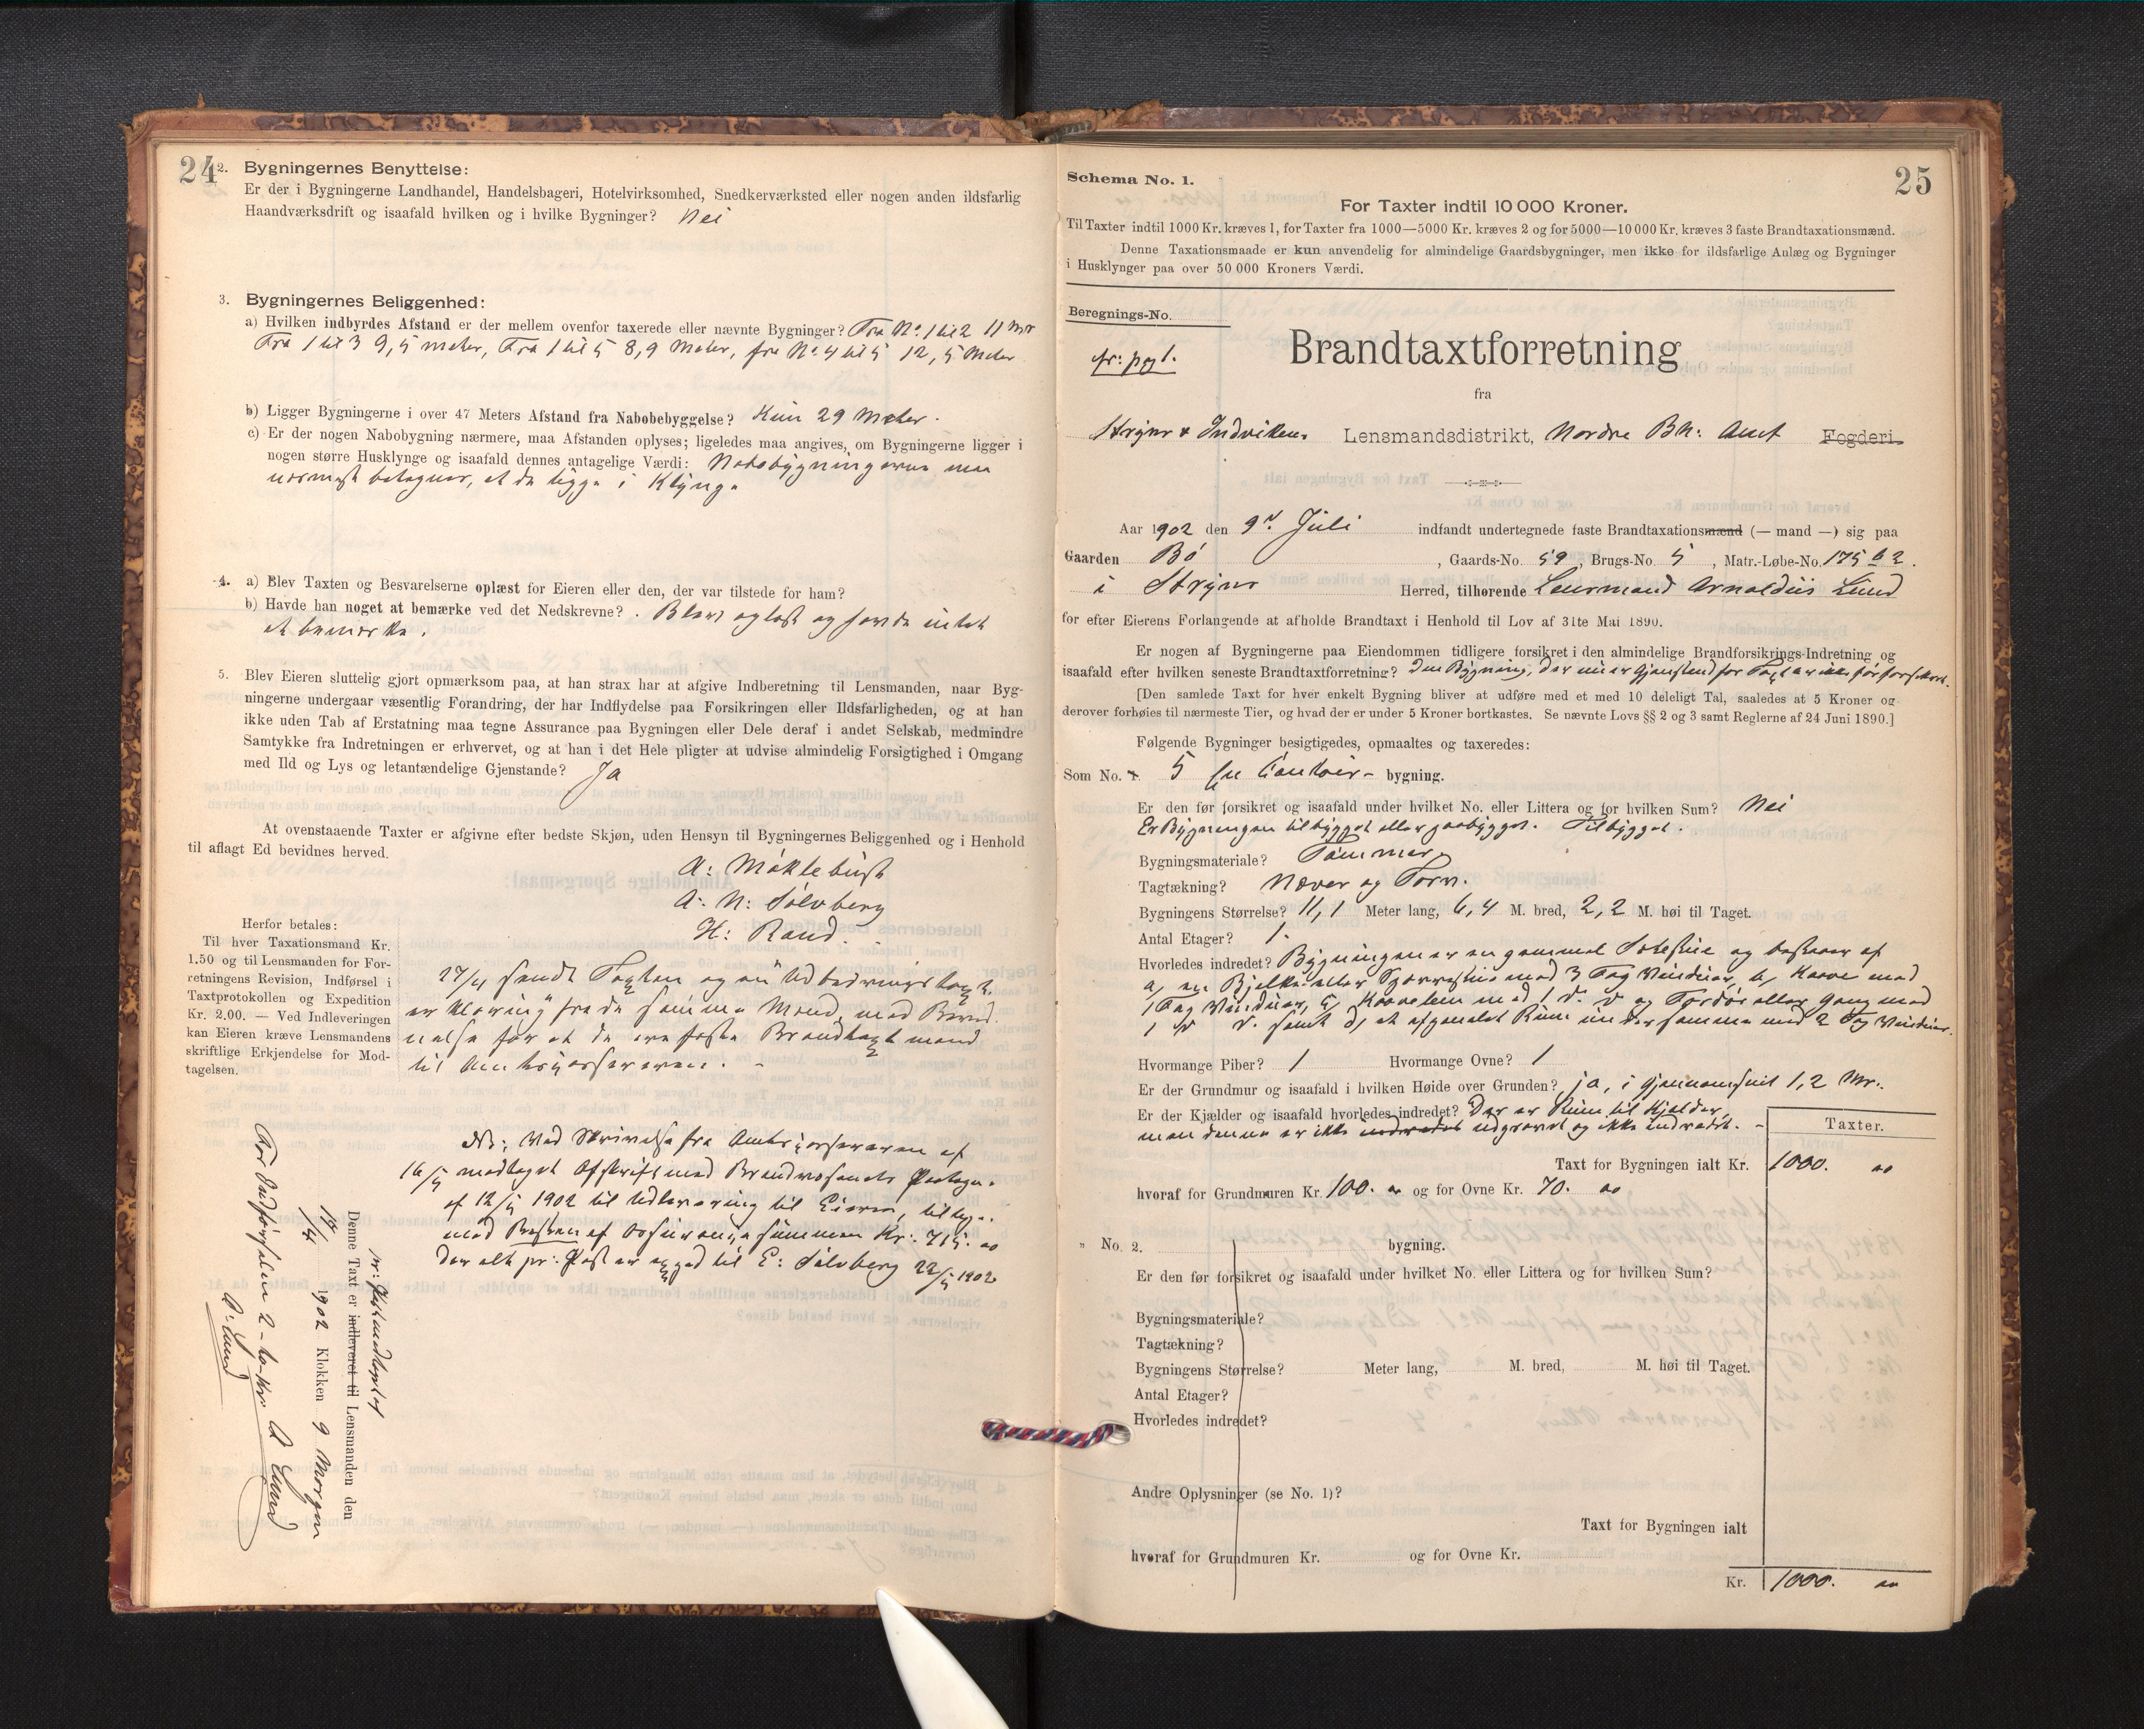 24
2. Bygningernes Benyttelse:
Er der i Bygningerne Landhandel, Handelsbageri, Hotelvirksomhed, Snedkerværksted eller nogen anden ildsfarlig
Haandværksdrift og isaafald hvilken og i hvilke Bygninger? Nei
3. Bygningernes Beliggenhed:
a) Hvilken indbyrdes Afstand er der mellem ovenfor taxerede eller nævnte Bygninger? Fra No. 1 til 2 11 Mr
Fra 1 til 3 9,5 meter, Fra 1 til 5 8,9 Meter, fra No. 4 til 5 12,5 Meter
b) Ligger Bygningerne i over 47 Meters Afstand fra Nabobebyggelse? Kun 29 Meter.
c) Er der nogen Nabobygning nærmere, maa Afstanden oplyses; ligeledes maa angives, om Bygningerne ligger i
nogen større Husklynge og isaafald dennes antagelige Værdi: Nabobygningerne maa
nærmest betegnes, at de ligge i Klynge
4. a) Blev Taxten og Besvarelserne oplæst for Eieren eller den, der var tilstede for ham?
b) Havde han noget at bemærke ved det Nedskrevne? . Blev oplæst og havde intet
at bemærke.
5. Blev Eieren sluttelig gjort opmærksom paa, at han strax har at afgive Indberetning til Lensmanden, naar Byg-
ningerne undergaar væsentlig Forandring, der har Indflydelse paa Forsikringen eller Ildsfarligheden, og at han
ikke uden Tab af Erstatning maa tegne Assurance paa Bygningen eller Dele deraf i andet Selskab, medmindre
Samtykke fra Indretningen er erhvervet, og at han i det Hele pligter at udvise almindelig Forsigtighed i Omgang
med Ild og Lys og letantændelige Gjenstande? Ja
At ovenstaaende Taxter er afgivne efter bedste Skjøn, uden Hensyn til Bygningernes Beliggenhed og i Henhold
til aflagt Ed bevidnes herved.
A: Møklebust
A: N: Sølvberg
H: Rand.
Herfor betales:
Til hver Taxationsmand Kr.
1.50 og til Lensmanden for For-
retningens Revision, Indførsel i
Taxtprotokollen og Expedition
Kr. 2.00. — Ved Indleveringen
kan Eieren kræve Lensmandens
skriftlige Erkjendelse for Mod-
tagelsen.
17/4 sendt Taxten og en Udbedringstaxt
er klæring fra de samme Mænd, med Bevid.
nelse for at de ere faste Brandtaxtmænd
til Amtsforseneren. -
NB: Med Skrivelse fra Amts
16/5 modtaget Afskrift med Brandvæsenets Paategn.
af 12/5 1902 til Udlevering til Eieren, tillige
med Resten af Assurancesummen Kr: 715. oo
Der alt pr: Post er exped til E: Sølvberg 22/5 1902
Denne Taxt er indleveret til Lensmanden den
14/4 1902 Klokken 9 Morgen
For Indførselen 2 - to - Kr. A Lund
A: Lund
Schema No. 1.
25
For Taxter indtil 10 000 Kroner.
Til Taxter indtil 1000 Kr. kræves 1, for Taxter fra 1000—5000 Kr. kræves 2 og for 5000—10 000 Kr. kræves 3 faste Brandtaxationsmænd.
Denne Taxationsmaade er kun anvendelig for almindelige Gaardsbygninger, men ikke for ildsfarlige Anlæg og Bygninger
i Husklynger paa over 50 000 Kroners Værdi.
Beregnings-No.
Brandtaxtforretning
fr: pag 1.
fra
Stryns & Indvikens Lensmandsdistrikt, Nordre Bh: Amt Fogderi.
Aar 1902 den 9d. Juli indfandt undertegnede faste Brandtaxationsmænd (— mand —) sig paa
Gaarden Bø , Gaards-No. 59, Brugs-No. 5, Matr.-Løbe-No. 175 b 2.
i Stryns Herred, tilhørende Lensmand Arnoldus Lund
for efter Eierens Forlangende at afholde Brandtaxt i Henhold til Lov af 31te Mai 1890.
Er nogen af Bygningerne paa Eiendommen tidligere forsikret i den almindelige Brandforsikrings-Indretning og
isaafald efter hvilken seneste Brandtaxtforretning? Den Bygning, der nu er Gjenstand for Taxt er ikke før forsikret.
[Den samlede Taxt for hver enkelt Bygning bliver at udføre med et med 10 deleligt Tal, saaledes at 5 Kroner og
derover forhøies til nærmeste Tier, og hvad der er under 5 Kroner bortkastes. Se nævnte Lovs §§ 2 og 3 samt Reglerne af 24 Juni 1890.]
Følgende Bygninger besigtigedes, opmaaltes og taxeredes:
Som No. 5 En Contoir- bygning.
Er den før forsikret og isaafald under hvilket No. eller Littera og for hvilken Sum? Nei
Er Bygningen tilbygget eller paabygget. Tilbygget.
Bygningsmateriale? Tømmer,
Tagtækning? Næver og Torv.
Bygningens Størrelse? 11,1 Meter lang, 6,4 M. bred, 2,2 M. høi til Taget.
Antal Etager? 1.
Hvorledes indret? Bygningen er en gammel Sætestue og bestaar af
a, en Bjelke eller Sperrestue med 3 Fag Vinduer, b, Kove med
1 Fag Vinduer, c, Kovelem med 1 F. V og Fordør eller Gang med
1 F V. samt d, et afpanelet Rum under samme med 2 Fag Vinduer.
Hvormange Piber? 1 Hvormange Ovne? 1
Er der Grundmur og isaafald i hvilken Høide over Grunden? ja, i Gjennemsnit 1,2 Mr.
Er der Kjælder og isaafald hvorledes indredet? Der er Rum til Kjelder,
men denne er ikke indredet udgravet og ikke indredet. -
Taxter.
Taxt for Bygningen ialt Kr. 1000. oo
hvoraf for Grundmuren Kr. 100. oo og for Ovne Kr. 70. oo
" No. 2. bygning.
Er den før forsikret og isaafald under hvilket No. eller Littera og for hvilken Sum?
Bygningsmateriale?
Tagtækning?
Bygningens Størrelse? Meter lang, M. bred, M. høi til Taget.
Antal Etager?
Hvorledes indredet?
Andre Oplysninger (se No. 1)?
Taxt for Bygningen ialt
hvoraf for Grundmuren Kr. og for Ovne Kr.
Kr. 1000. oo